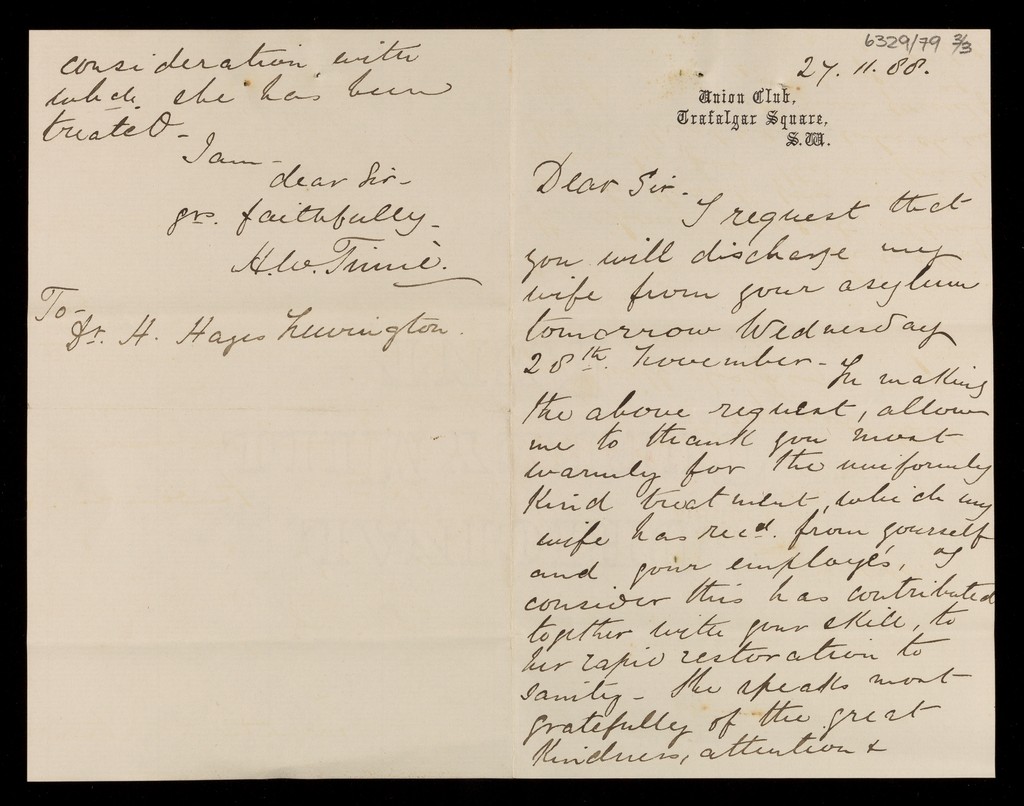 6329/79 2/3
27. 11. 88.
Union Club,
Trafalgar Square,
S.W.
Dear Sir -
I request that
you will discharge my
wife from your asylum
tomorrow Wednesday
28th. November - In making
the above request, allow
me to thank you most
warmly for the uniformly
kind treatment, which my
wife has recd. from yourself
and your employés, as I
consider this has contributed
together with your skill, to
her rapid restoration to
sanity - She speaks most
gratefully of the great
kindness, attention &
consideration with
which she has been
treated -
I am -
dear Sir -
yrs. faithfully -
H. W.
To -
Dr. H. Hayes Newington.